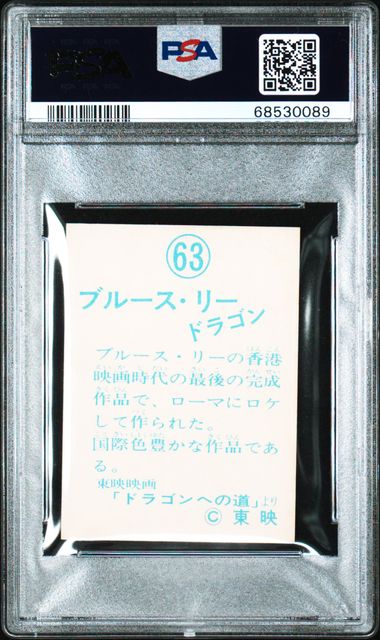 PSA
PSA
68530089
63
ブルース・リー
ドラゴン
ブルース・リーの香港
映画時代の最後の完成
作品で、ローマにロケ
して作られた。
国際色豊かな作品であ
る。
東映映画
「ドラゴンへの道」より
© 東映